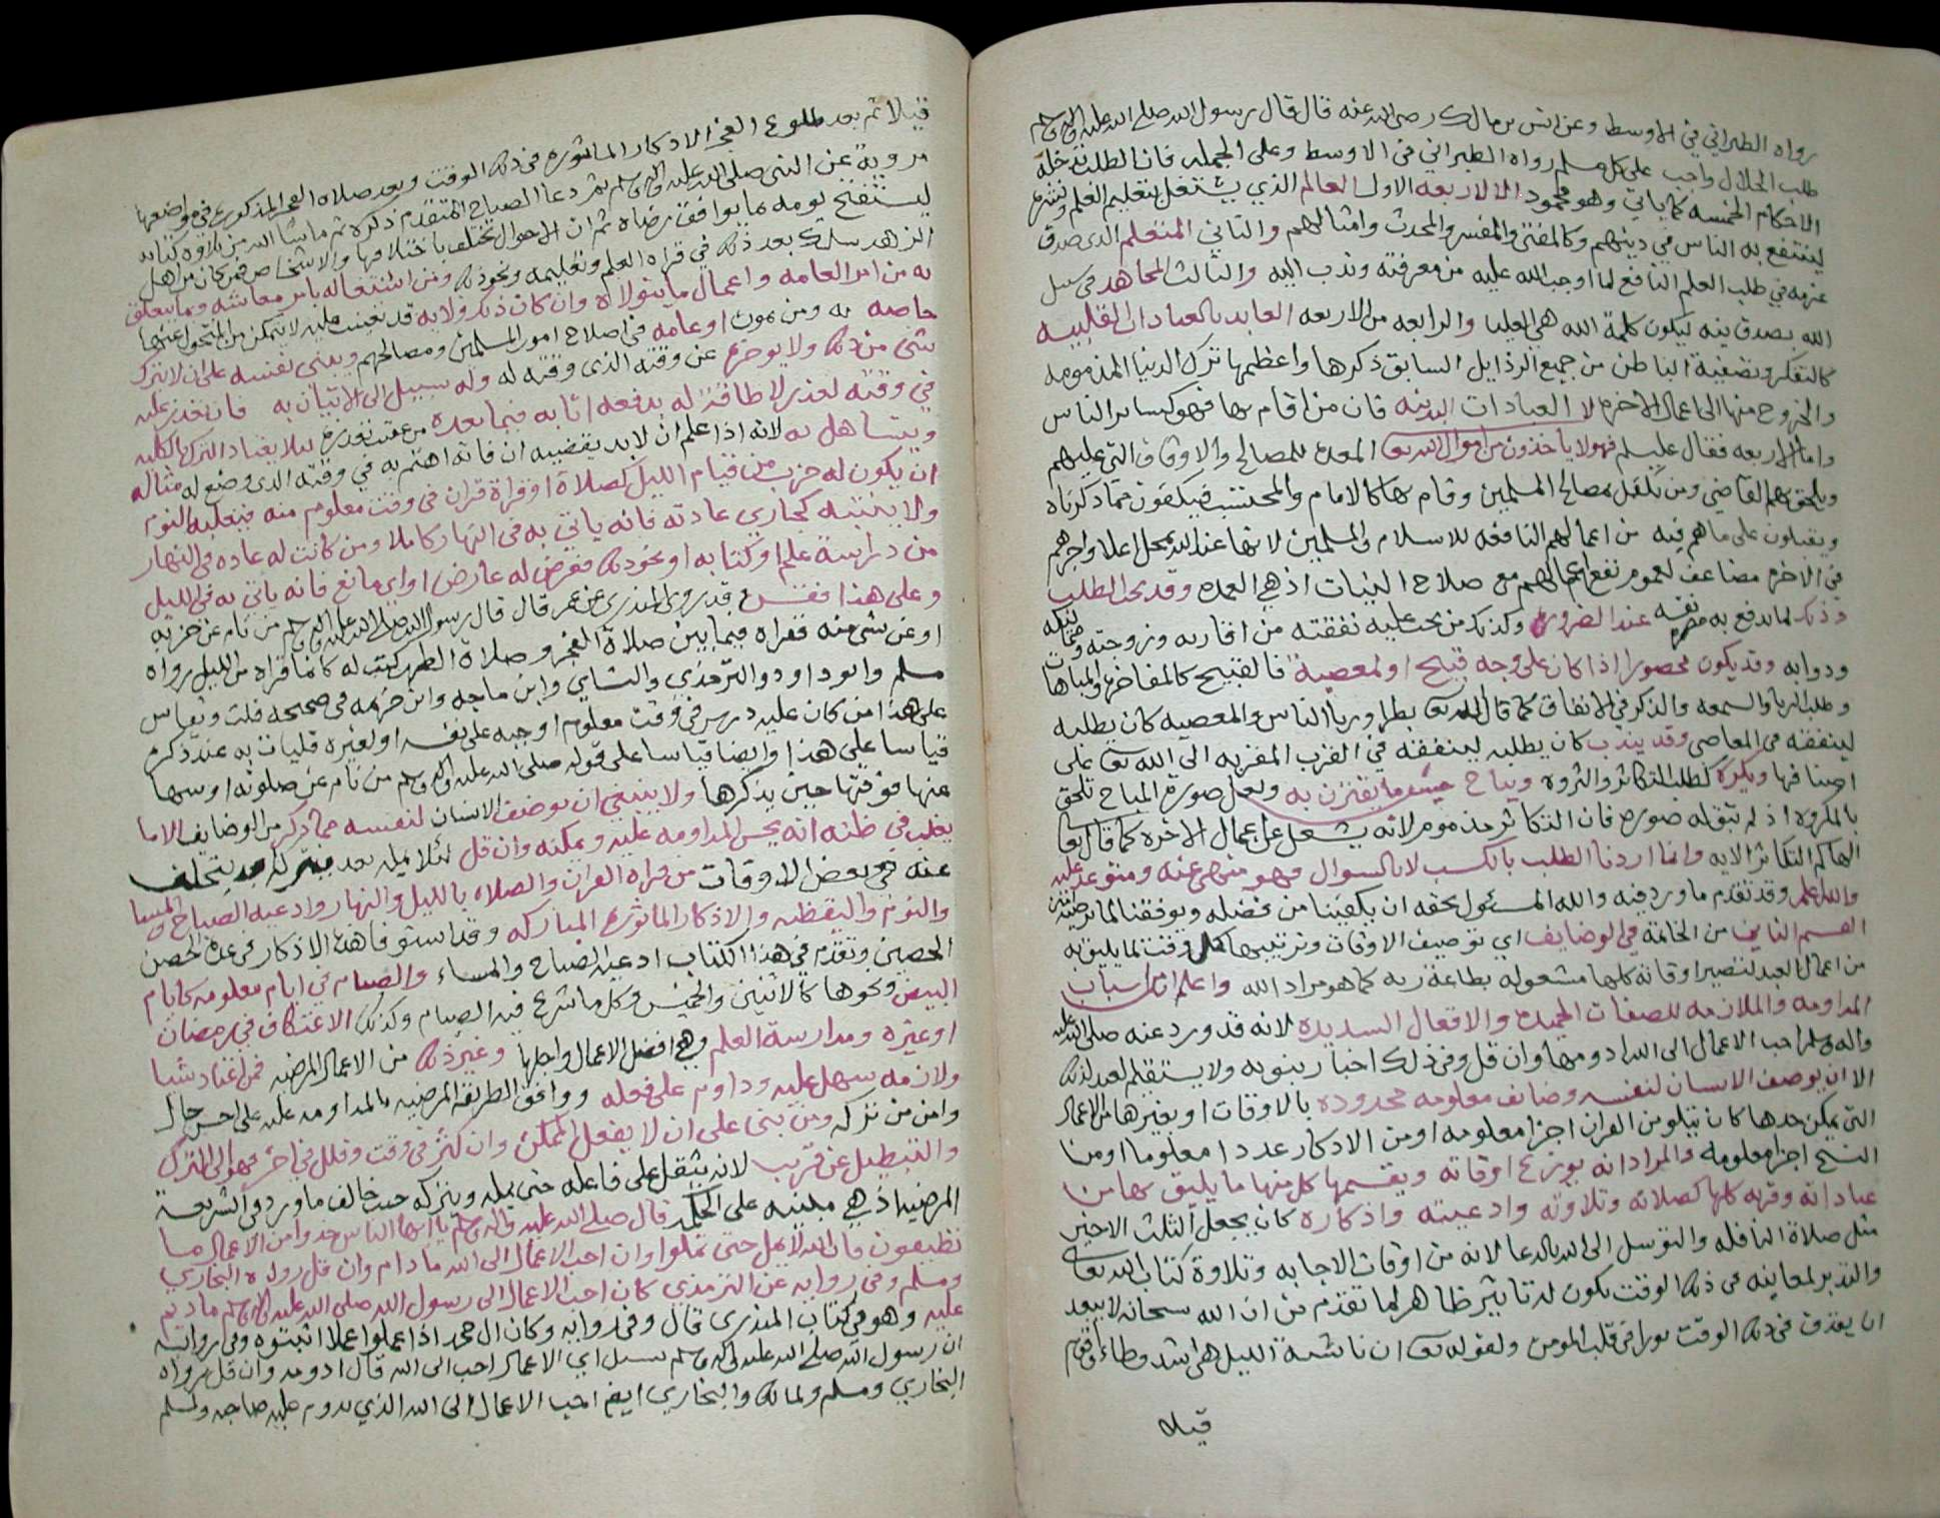 رواه الطبراني في الاوسط وعن انس بن مالك رضي الله عنه قال قال رسول الله صلى الله عليه واله وسلم
طلب الحلال واجب على كل مسلم رواه الطبراني في الاوسط وعلى الجمله فان الطلب تدخله
الاحكام الخمسه كما ياتي وهو محمود الا لاربعه الاول العالم الذي يشتغل بتعليم العلم ونشره
لينتفع به الناس في دينهم وكالمفتي والمفسر والمحدث وامثالهم والثاني المتعلم الذي صدق
عزمه في طلب العلم النافع لما اوجب الله عليه من معرفته وندب اليه والثالث المجاهد في سبيل
الله بصدق نيه ليكون كلمة الله هي العليا والرابعه من الاربعه العابد بالعبادات القلبيه
كالتفكر وتصفية الباطن من جميع الرذايل السابق ذكرها واعظمها ترك الدنيا المذمومه
والخروج منها الى اعمال الاخره لا العبادات البدنيه فان من اقام بها فهو كساير الناس
واما الاربعه فقال عليلم فهولا ياخذون من اموال الله تعا المعده للمصالح والاوقاف التي عليهم
ويلحق بهم القاضي ومن تكفل بمصالح المسلمين وقام بها كالامام والمحتسب فيكفون مما ذكرناه
ويقبلون على ما هم فيه من اعمالهم النافعه للاسلام والمسلمين لانها عند الله بمحل اعلا واجرهم
في الاخره مضاعف لعموم نفع اعمالهم مع صلاح النيات اذ هي العمده وقد يجب الطلب
وذلك لما يدفع به ضره نفسه عند الضروره وكذلك من يجب عليه نفقته من اقاربه وزوجته
ودوابه وقد يكون محصورا اذا كان على وجه قبيح او لمعصية فالقبيح كالمفاخره والمباهاه
وطلب الريا والسمعه والذكر في الانفاق كما قال الله تعا بطرا ورياا الناس والمعصيه كان يطلبه
لينفقه في المعاصي وقد يندب كان يطلبه لينفقه في القرب المقربه الى الله تعا على
اصنافها ويكره كطلب التكاثر والثروه ويباح حيث ما يقترن به ولعل صورة المباح تلحق
بالمكروه اذ لم تبق له صوره فان التكاثر مذموم لانه يشغل عن اعمال الاخره كما قال تعا
الهاكم التكاثر الايه وانما اردنا الطلب بالكسب لا بالسوال فهو منهي عنه ومتوعد عليه
والله اعلم وقد تقدم ما ورد فيه والله المسئول بحقه ان يكفينا من فضله ويوفقنا لما يرضيه
القسم الثاني من الخاتمة في الوضايف اي توصيف الاوقات وترتيبها كل وقت لما يليق به
من اعمال العبد لتصير اوقاته كلها مشغوله بطاعة ربه كما هو مراد الله واعلم ان اسباب
المداومه والملازمه للصفات الحميده والافعال السديده لانه قد ورد عنه صلى الله عليه
واله وسلم احب الاعمال الى الله ادومها وان قل وفي ذلك اخبار نبويه ولا يستقيم لعبد لذلك
الا ان يوصف الانسان لنفسه وضايف معلومه محدوده بالاوقات او بغيرها من الاعمال
التي يمكن حدها كان يتلو من القران اجزا معلومه او من الاذكار عددا معلوما او من
النسخ اجزا معلومه والمراد انه يوزع اوقاته ويقسمها كل منها ما يليق بها من
عباداته وقربه كلها كصلاته وتلاوته وادعيته واذكاره كان يجعل الثلث الاخير
مثل صلاة النافله والتوسل الى الله بالدعا لانه من اوقات الاجابه وتلاوة كتاب الله تعا
والتدبر لمعانيه في ذلك الوقت يكون له تاثير ظاهر لما تقدم من ان الله سبحانه لا يبعد
ان يقذف في ذلك الوقت نورا في قلب المومن ولقوله تعا ان ناشئة الليل هي اشد وطاء واقوم
قيله
قيلا ثم بعد طلوع الفجر الاذكار الماثوره في ذلك الوقت وبعد صلاه الفجر المذكوره في مواضعها
مرويه عن النبي صلى الله عليه واله وسلم ثم دعا الصباح المتقدم ذكره ثم ما شا الله من تلاوه كتابه
ليستفتح يومه بما يوافق رضاه ثم ان الاحوال تختلف باختلافها والاشخاص فمن كان من اهل
الزهد سلك بعد ذلك في قراه العلم وتعليمه ونحو ذلك ومن اشتغاله بامر معاشه وما يتعلق
به من امر العامه واعمال ما يتولاه وان كان ذلك ولايه قد تعينت عليه لا يتمكن من التحول عنها
خاصه به ومن يموت او عامه في اصلاح امور المسلمين ومصالحهم ويعني نفسه على ان لا يترك
شي من ذلك ولا يوخره عن وقته الذي وقته له وله سبيل الى الاتيان به فان تعذر عليه
في وقته لعذر لا طاقة له بدفعه اتا به فيما بعده من عقب تعذره ليلا يعتاد الترك بالكليه
ويتساهل به لانه اذا علم ان لا بد يقضيه ان فاته اهتم به في وقته الذي وضع له مثاله
ان يكون له حزب من قيام الليل كصلاة او قراة قران في وقت معلوم منه فيغلبه النوم
ولا ينتبه كجاري عادته فانه ياتي به في النهار كاملا ومن كانت له عاده في النهار
من دراسة علم او كتابه او نحو ذلك فعرض له عارض او اي مانع فانه ياتي به في الليل
وعلى هذا فقس قد روى المنذري عن عمر قال قال رسول الله صلى الله عليه واله وسلم من نام عن حزبه
او عن شي منه فقراه فيما بين صلاة الفجر وصلاة الظهر كتب له كانما قراه من الليل رواه
مسلم وابو داود والترمذي والنسايي وابن ماجه وابن خزيمه في صحيحه قلت ويقاس
على هذا من كان عليه درس في وقت معلوم اوجبه على نفسه او لغيره فليات به عند ذكره
قياسا على هذا وايضا قياسا على قوله صلى الله عليه واله وسلم من نام عن صلوته او سها
عنها فوقتها حين يذكرها ولا ينبغي ان يوضف الانسان لنفسه مما ذكر من الوضايف الا ما
يغلب في ظنه انه يحسن المداومه عليه ويمكنه وان قل لئلا يمله بعد فيتركه او يتخلف
عنه في بعض الاوقات من قراه القران والصلاه بالليل والنهار وادعيه الصباح والمسا
والنوم واليقظه والاذكار الماثوره المباركه وقد استوفا هذه الاذكار في عدة الحصن
الحصين وتقدم في هذا الكتاب ادعيه الصباح والمساء والصيام في ايام معلومه كايام
البيض ونحوها كالاثنين والخميس وكل ما شرع فيه الصيام وكذلك الاعتكاف في رمضان
او غيره ومدارسة العلم وهي افضل الاعمال واجلها وغير ذلك من الاعمال المرضيه فمن اعتاد شيا
ولازمه سهل عليه وداوم على فعله ووافق الطريقه المرضيه بالمداومه عليه على احسن حال
وامن من تركه ومن بنى على ان لا يفعل الممكن وان كثر في وقت وقلل في اخر فهو الى الترك
والتبطيل عن قريب لانه يثقل على فاعله حتى يمله ويتركه حيث خالف ما ورد في الشريعة
المرضيه اذ هي مبنيه على الحكمه قال صلى الله عليه واله وسلم يا ايها الناس خذوا من الاعمال ما
تطيقون فان الله لا يمل حتى تملوا وان احب الاعمال الى الله ما دام وان قل رواه البخاري
ومسلم وفي روايه عن الترمذي كان احب الاعمال الى رسول الله صلى الله عليه واله وسلم ما ديم
عليه وهو في كتاب المنذري قال وفي روايه وكان ال محمد اذا عملوا عملا اثبتوه وفي روايه
ان رسول الله صلى الله عليه واله وسلم سيل اي الاعمال احب الى الله قال ادومه وان قل رواه
البخاري ومسلم ولمالك والبخاري ايضا احب الاعمال الى الله الذي يدوم عليه صاحبه ولمسلم